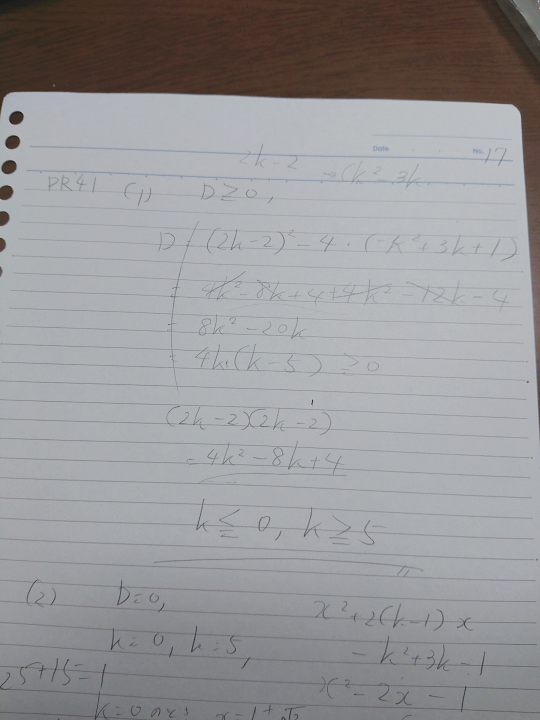 Date No. 17
2k-2 →(k²-3k
PR41 (1) D≧0,
D=(2k-2)²-4・(-k²+3k+1)
=4k²-8k+4+4k²-12k-4
=8k²-20k
=4k(k-5)≧0
(2k-2)(2k-2)
=4k²-8k+4
k≦0, k≧5
(2) D=0,
k=0, k=5,
x²+2(k-1)x
-k²+3k-1
25+15=1
x²-2x-1